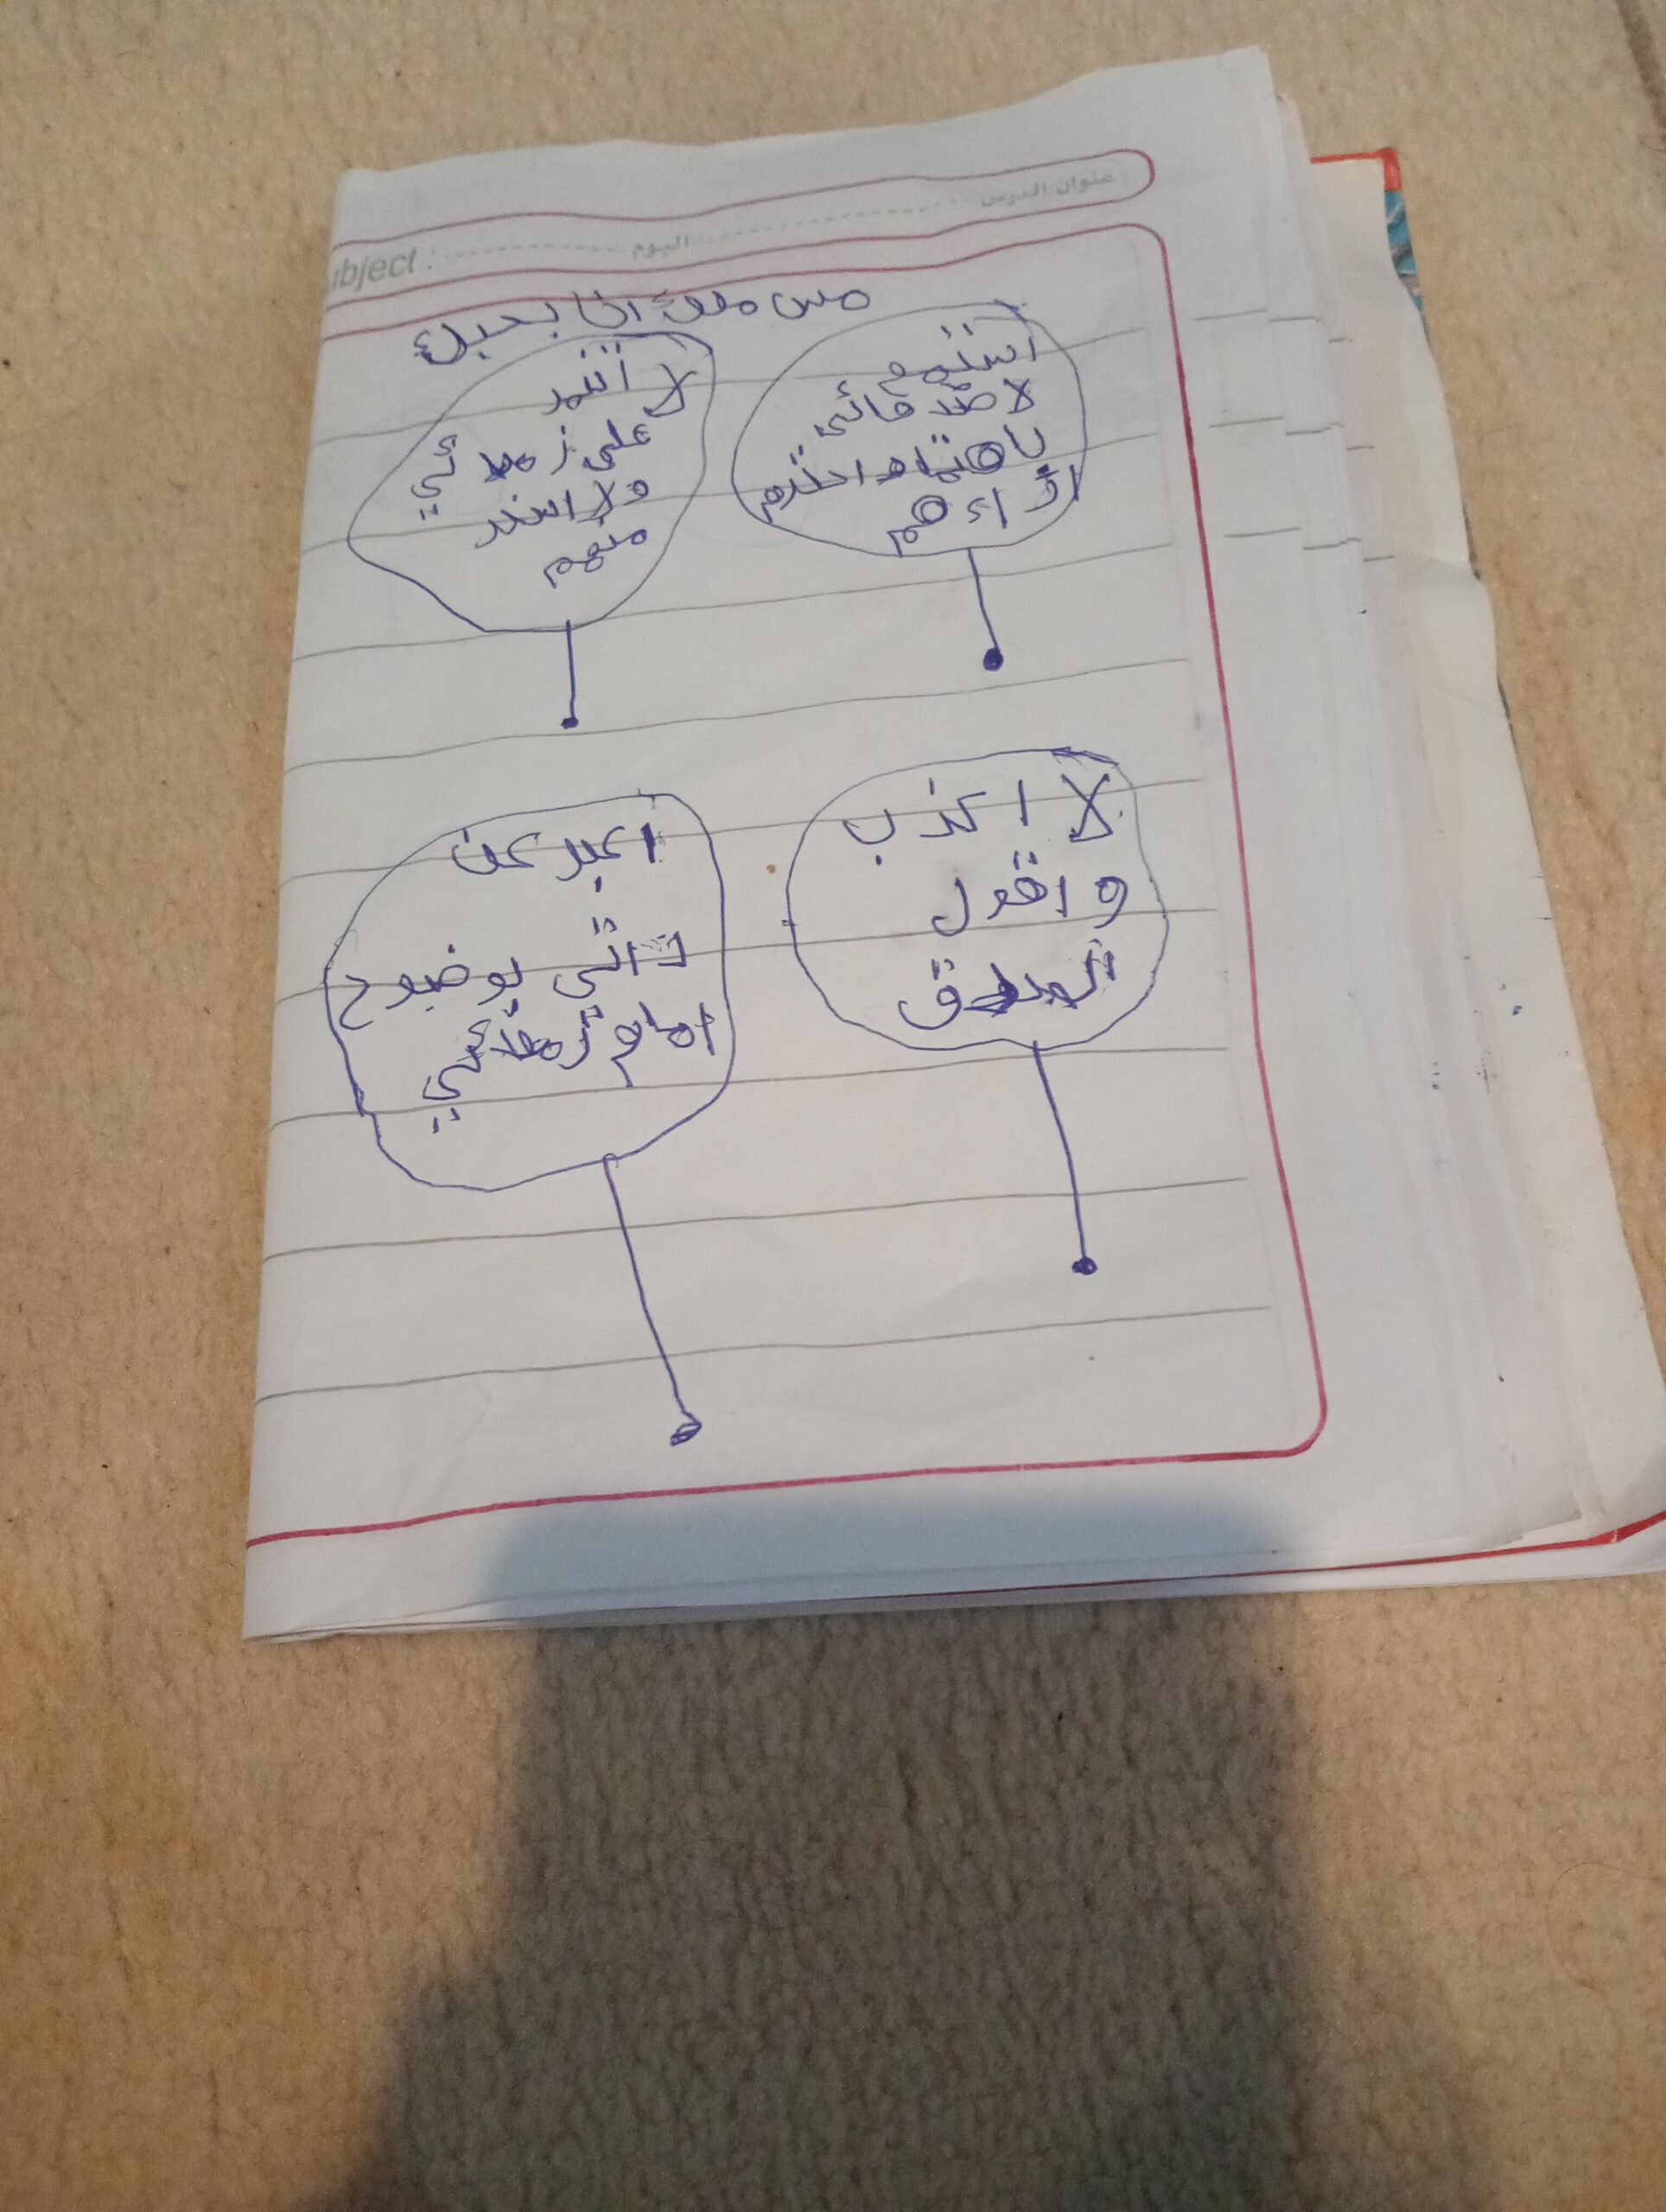 عنوان الدرس
اليوم
ubject :
مس ملوك انا بحبك
استمع
لاصدقائي
باهتمام احترم
اراءهم
لا اتنمر
على زملائي
ولا اسخر
منهم
لا اكذب
و اقول
الصدق
اعبر عن
ذاتي بوضوح
امام زملائي